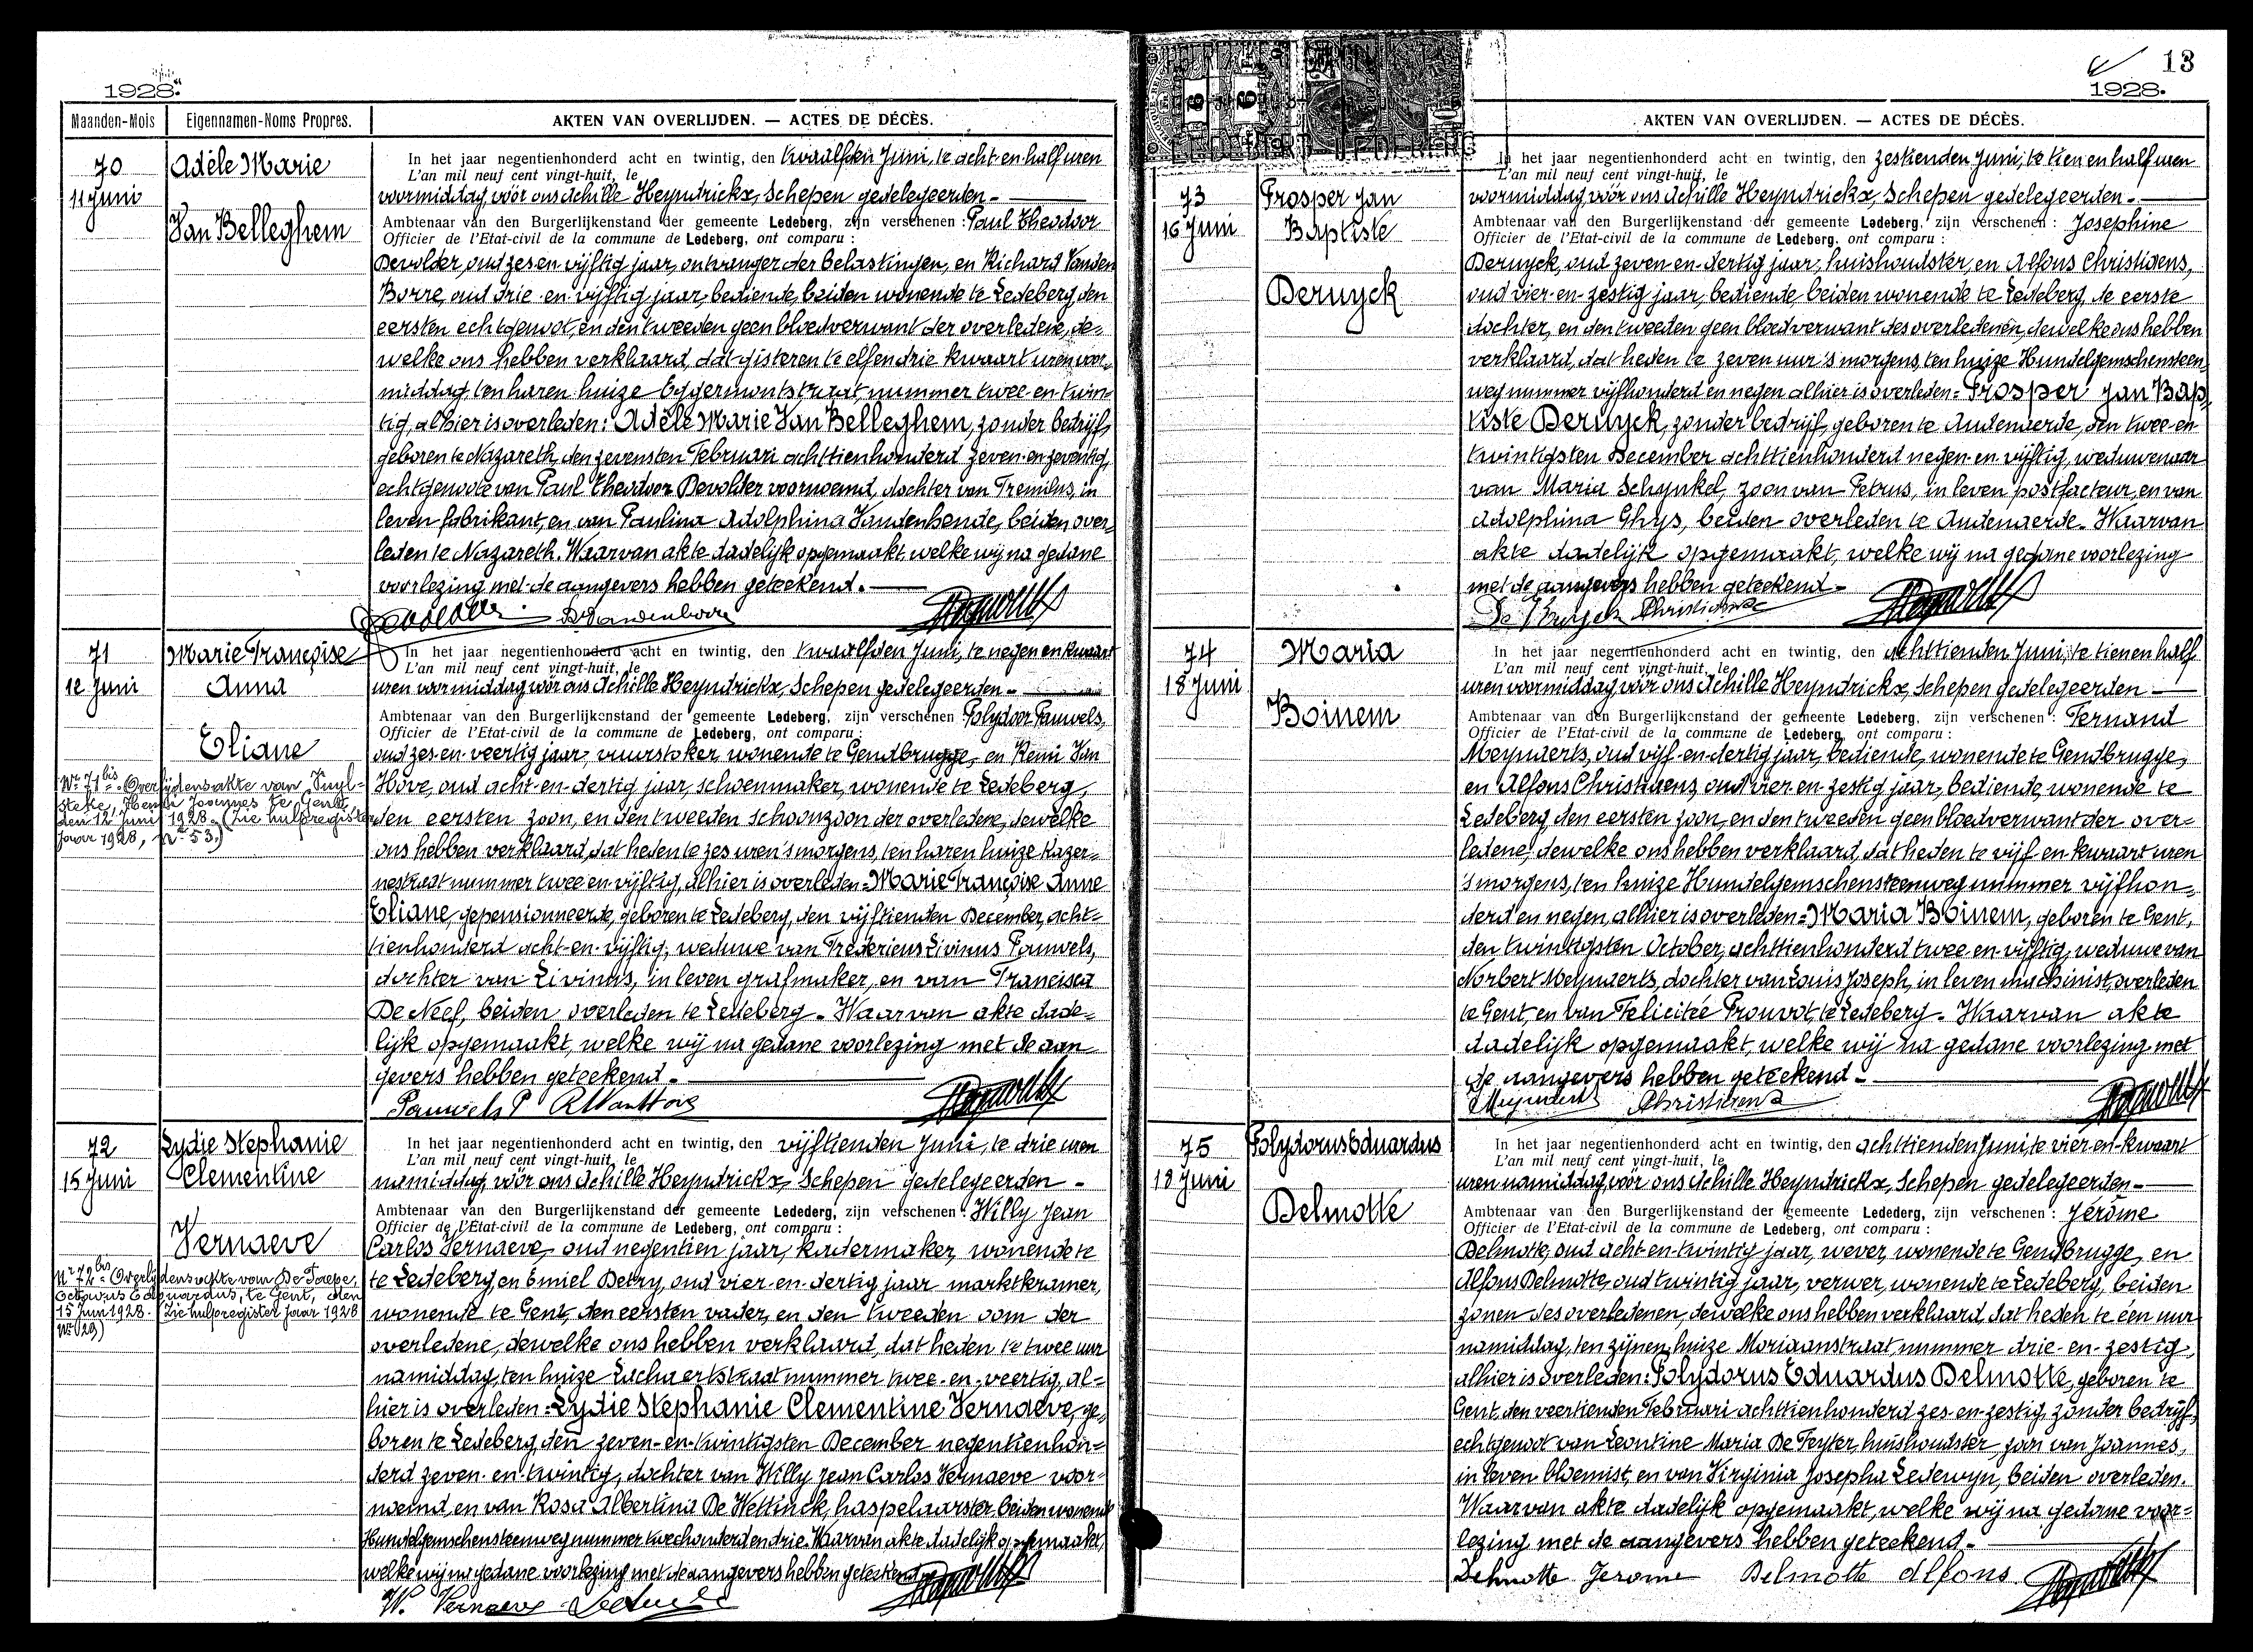 1928.
Maanden-Mois
Eigennamen-Noms Propres.
AKTEN VAN OVERLIJDEN. — ACTES DE DÉCÈS.
70
11 Juni
Adèle Marie
Van Belleghem
In het jaar negentienhonderd acht en twintig, den twaalfden Juni, te acht en half uren
L'an mil neuf cent vingt-huit, le
voormiddag, vóór ons Achille Heyndrickx, Schepen gedelegeerden -
Ambtenaar van den Burgerlijkenstand der gemeente Ledeberg, zijn verschenen : Paul Theodoor
Officier de l'Etat-civil de la commune de Ledeberg, ont comparu :
Devolder, oud zes en vijftig jaar, ontvanger der belastingen, en Richard Vanden
Borre, oud drie-en-vijftig jaar, bediende, beiden wonende te Ledeberg den
eersten echtgenoot, en den tweeden geen bloedverwant der overledene, de=
welke ons hebben verklaard, dat gisteren te elf en drie kwaart uren voor-
middag, ten haren huize Eggermontstraat, nummer twee-en-twin-
tig, alhier is overleden: Adèle Marie Van Belleghem, zonder bedrijf,
geboren te Nazareth, den zevensten Februari achttienhonderd zeven-en-zeventig,
echtgenoote van Paul Theodoor Devolder voornoemd, dochter van in
leven fabrikant, en van Paulina Adolphina Vandenhende, beiden over-
leden te Nazareth. Waarvan akte dadelijk opgemaakt, welke wij na gedane
voorlezing met de aangevers hebben geteekend. -
71
12 Juni
Marie Françoise
Anna
Eliane
Nr 71bis - Overlijdensakte van
Henri Joannes te Gent,
den 12 Juni 1928. (Zie hulpregister
jaar 1928, nr 53.)
In het jaar negentienhonderd acht en twintig, den twaalfden Juni, te negen en kwaart
L'an mil neuf cent vingt-huit, le
uren voormiddag vóór ons Achille Heyndrickx, Schepen gedelegeerden -
Ambtenaar van den Burgerlijkenstand der gemeente Ledeberg, zijn verschenen Polydoor Pauwels,
Officier de l'Etat-civil de la commune de Ledeberg, ont comparu :
oud zes-en-veertig jaar, vuurstoker, wonende te Gendbrugge, en Remi Van
Hove, oud acht-en-dertig jaar, schoenmaker, wonende te Ledeberg,
den eersten zoon, en den tweeden schoonzoon der overledene, dewelke
ons hebben verklaard, dat heden te zes uren 's morgens, ten haren huize Kazer=
nestraat nummer twee en vijftig, alhier is overleden: Marie Françoise Anne
Eliane, gepensionneerde, geboren te Ledeberg, den vijftienden December, acht=
tienhonderd acht-en-vijftig, weduwe van Fredericus Livinus Pauwels,
dochter van Livinus, in leven grafmaker, en van Francisca
De Neef, beiden overleden te Ledeberg. Waarvan akte dade=
lijk opgemaakt, welke wij na gedane voorlezing met de aan
gevers hebben geteekend. -
Pauwels P R Van Hove
72
15 Juni
Lydie Stephanie
Clementine
Vernaeve
Nr 72bis - Overlijdensakte van De Paepe,
Octavus Eduardus, te Gent, den
15 Juni 1928. Zie hulpregister jaar 1928
Nr 29)
In het jaar negentienhonderd acht en twintig, den vijftienden Juni, te drie uren
L'an mil neuf cent vingt-huit, le
namiddag, vóór ons Achille Heyndrickx, Schepen gedelegeerden -
Ambtenaar van den Burgerlijkenstand der gemeente Ledederg, zijn verschenen : Willy Jean
Officier de l'Etat-civil de la commune de Ledeberg, ont comparu :
Carlos Vernaeve, oud negentien jaar, kadermaker, wonende te
te Ledeberg, en Emiel Detry, oud vier-en-dertig jaar marktkramer,
wonende te Gent, den eersten vader, en den tweeden oom der
overledene, dewelke ons hebben verklaard, dat heden te twee uur
namiddag, ten huize Lachaertstraat nummer twee-en-veertig, al=
hier is overleden: Lydie Stephanie Clementine Vernaeve, ge=
boren te Ledeberg, den zeven-en-twintigsten December negentienhon=
derd zeven-en-twintig, dochter van Willy Jean Carlos Vernaeve voor=
noemd, en van Rosa Albertina De Wettinck, haspelaarster, beiden wonende
Hundelgemschensteenweg nummer tweehonderd en drie. Waarvan akte dadelijk opgemaakt,
welke wij na gedane voorlezing met de aangevers hebben geteekend
W. Vernaeve
13
1928.
AKTEN VAN OVERLIJDEN. — ACTES DE DÉCÈS.
73
16 Juni
Prosper Jan
Baptiste
Deruyck
In het jaar negentienhonderd acht en twintig, den zestienden Juni, te tien en half uren
L'an mil neuf cent vingt-huit, le
voormiddag, vóór ons Achille Heyndrickx, Schepen gedelegeerden -
Ambtenaar van den Burgerlijkenstand der gemeente Ledeberg, zijn verschenen : Josephine
Officier de l'Etat-civil de la commune de Ledeberg, ont comparu :
Deruyck, oud zeven-en-dertig jaar, huishoudster, en Alfons Christiaens,
oud vier-en-zestig jaar, bediende, beiden wonende te Ledeberg, de eerste
dochter, en den tweeden geen bloedverwant des overledenen, dewelke ons hebben
verklaard, dat heden te zeven uur 's morgens, ten huize Hundelgemschensteen
weg nummer vijfhonderd en negen alhier is overleden: Prosper Jan Bap,
tiste Deruyck, zonder bedrijf, geboren te Audenaerde, den twee-en
twintigsten December achttienhonderd negen-en-vijftig, weduwenaar
van Maria Schynkel, zoon van Petrus, in leven postfacteur, en van
Adolphina Ghys, beiden overleden te Audenaerde. Waarvan
akte dadelijk opgemaakt, welke wij na gedane voorlezing
met de aangevers hebben geteekend -
De Ruyck Christiaens
74
18 Juni
Maria
Boinem
In het jaar negentienhonderd acht en twintig, den achttienden Juni, te tien en half
L'an mil neuf cent vingt-huit, le
uren voormiddag vóór ons Achille Heyndrickx, Schepen gedelegeerden -
Ambtenaar van den Burgerlijkenstand der gemeente Ledeberg, zijn verschenen : Fernand
Officier de l'Etat-civil de la commune de Ledeberg, ont comparu :
Meynaerts, oud vijf-en-dertig jaar, bediende, wonende te Gendbrugge,
en Alfons Christiaens, oud vier-en-zestig jaar, bediende, wonende te
Ledeberg, den eersten zoon, en den tweeden geen bloedverwant der over=
ledene, dewelke ons hebben verklaard, dat heden te vijf en kwaart uren
's morgens, ten huize Hundelgemschensteenweg nummer vijfhon=
derd en negen, alhier is overleden: Maria Boinem, geboren te Gent,
den twintigsten October, achttienhonderd twee-en-vijftig, weduwe van
Norbert Meynaerts, dochter van Louis Joseph, in leven machinist, overleden
te Gent, en van Felicitée Prouvot, te Ledeberg. Waarvan akte
dadelijk opgemaakt, welke wij na gedane voorlezing met
de aangevers hebben geteekend -
Meynaerts Christiaens
75
18 Juni
Polydorus Eduardus
Delmotte
In het jaar negentienhonderd acht en twintig, den achttienden Juni, te vier en-kwaart
L'an mil neuf cent vingt-huit, le
uren namiddag, vóór ons Achille Heyndrickx, Schepen gedelegeerden -
Ambtenaar van den Burgerlijkenstand der gemeente Ledederg, zijn verschenen : Jérôme
Officier de l'Etat-civil de la commune de Ledeberg, ont comparu :
Delmotte, oud acht-en-twintig jaar, wever, wonende te Gendbrugge, en
Alfons Delmotte, oud twintig jaar, verwer, wonende te Ledeberg, beiden
zonen des overledenen, dewelke ons hebben verklaard, dat heden te één uur
namiddag, ten zijnen huize Moriaanstraat, nummer drie-en-zestig,
alhier is overleden: Polydorus Eduardus Delmotte, geboren te
Gent, den veertienden Februari achttienhonderd zes-en-zestig, zonder bedrijf,
echtgenoot van Leontine Maria De Feyter, huishoudster, zoon van Joannes,
in leven bloemist, en van Virginia Josepha Ledewyn, beiden overleden.
Waarvan akte dadelijk opgemaakt, welke wij na gedane voor=
lezing met de aangevers hebben geteekend. -
Delmotte Jerome Delmotte Alfons